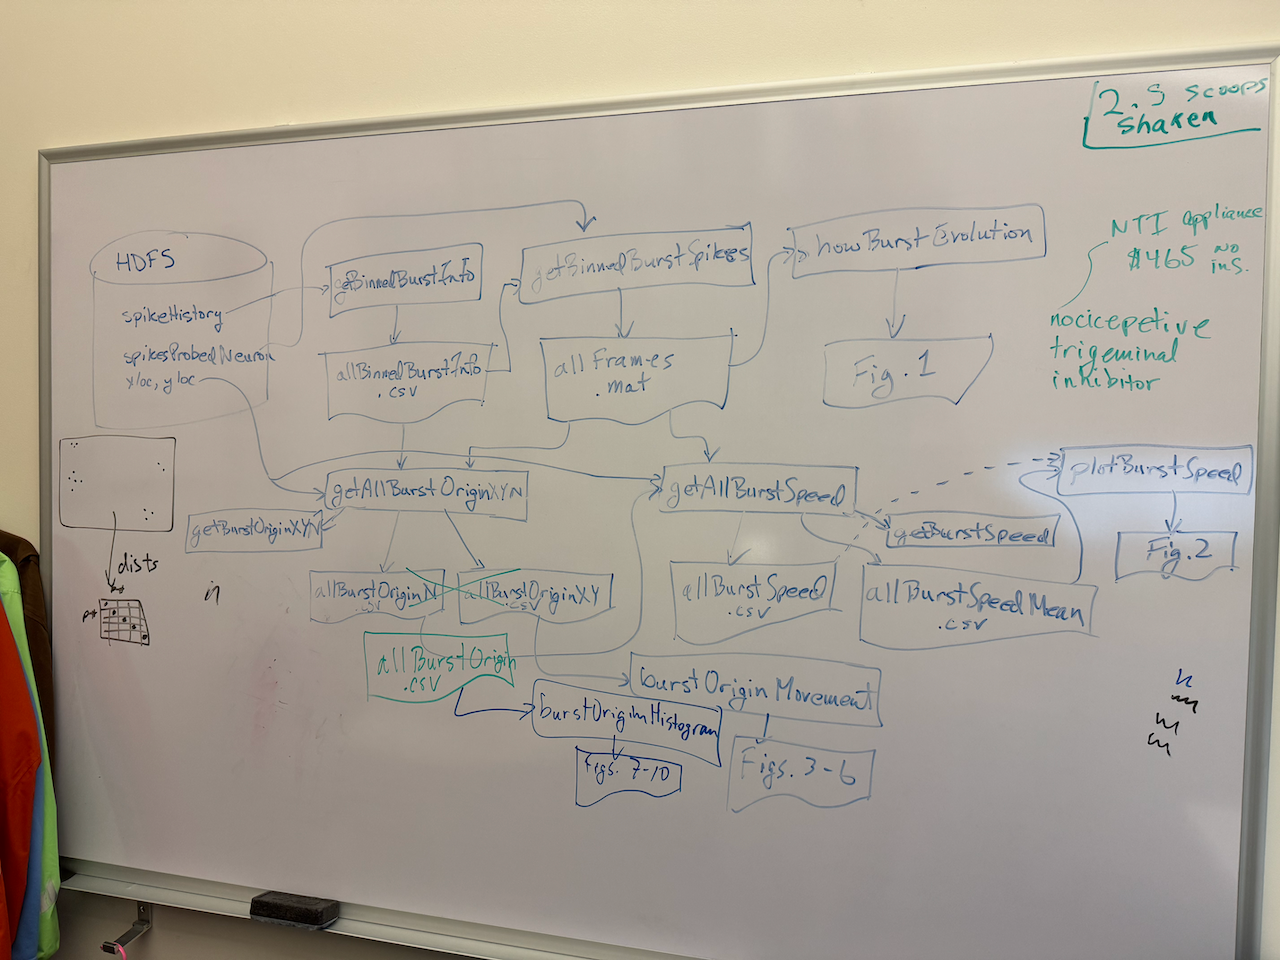 2.5 scoops
shaken
NTI appliance
$465 no
ins.
nocicepetive
trigeminal
inhibitor
HDF5
spikeHistory
spikesProbedNeuron
xloc, yloc
getBinnedBurstInfo
allBinnedBurstInfo
.csv
getBinnedBurstSpikes
allFrames
.mat
howBurstEvolution
Fig. 1
getAllBurstOriginXYN
getBurstOriginXYN
getAllBurstSpeed
getBurstSpeed
plotBurstSpeed
Fig. 2
dists
n
allBurstOriginN
.csv
allBurstOriginXY
.csv
allBurstSpeed
.csv
allBurstSpeedMean
.csv
allBurstOrigin
.csv
burstOriginMovement
burstOriginHistogram
Figs. 7-10
Figs. 3-6